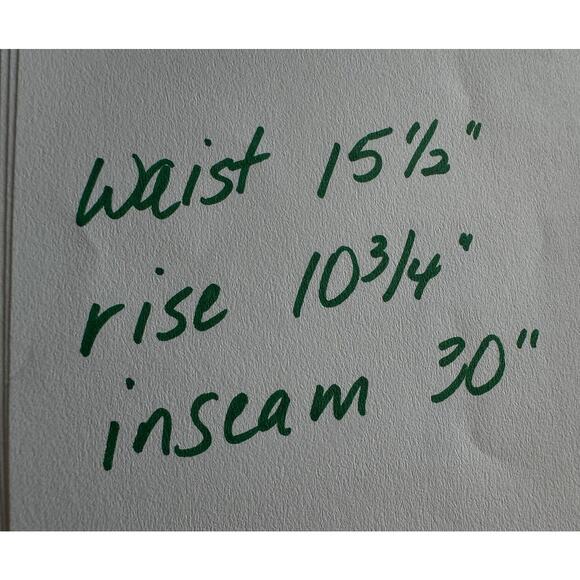 Waist 15 1/2"
rise 10 3/4"
inseam 30"